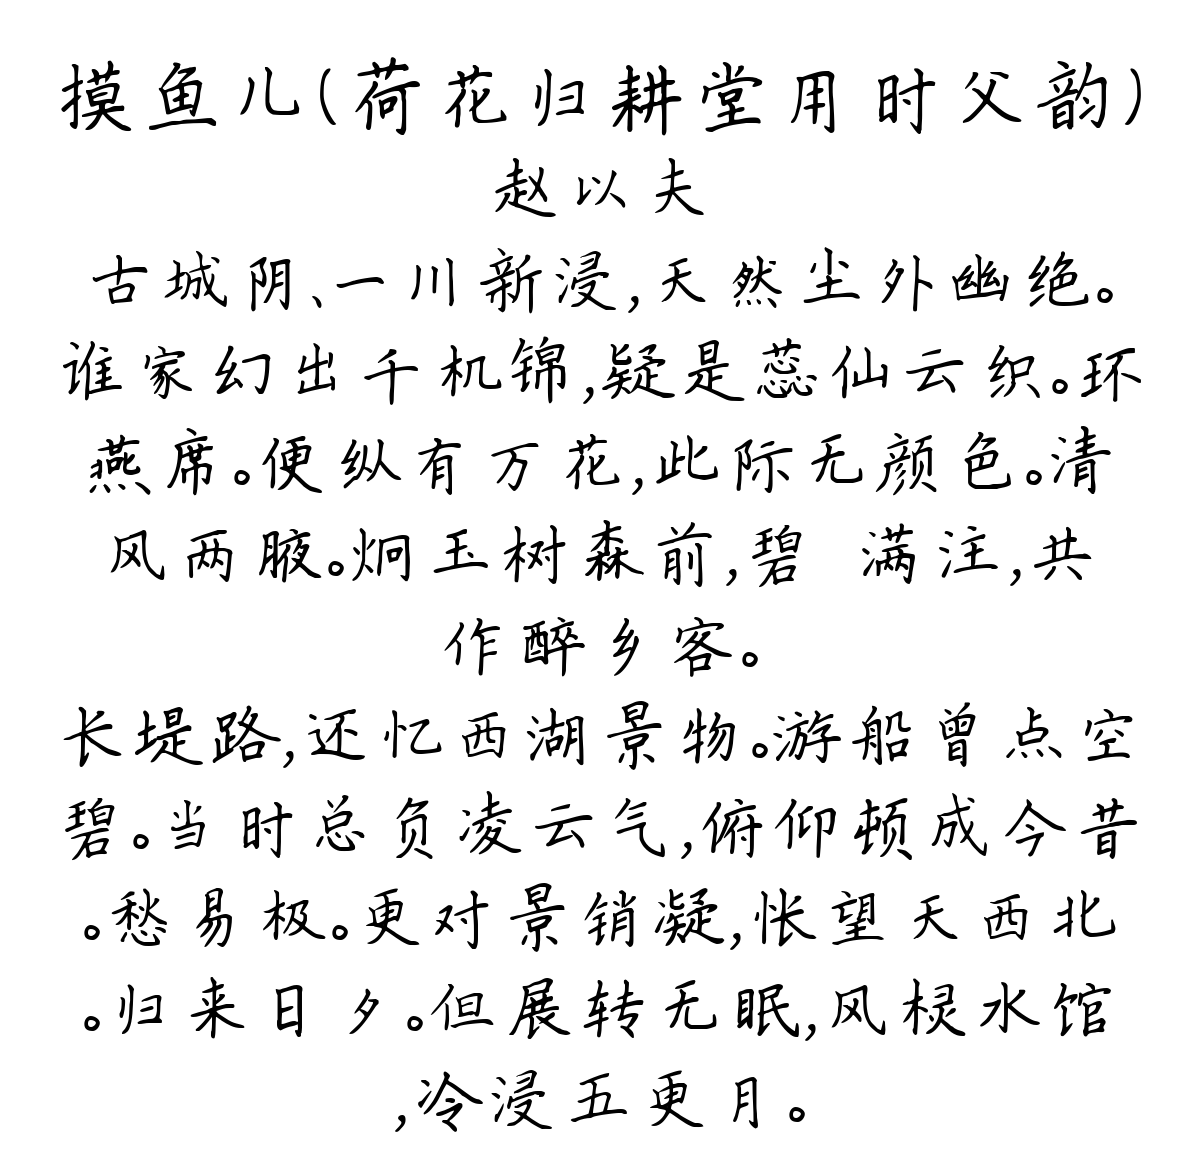 摸鱼儿(荷花归耕堂用时父韵)
赵以夫
古城阴、一川新浸,天然尘外幽绝。
谁家幻出千机锦,疑是蕊仙云织。环
燕席。便纵有万花,此际无颜色。清
风两腋。炯玉树森前,碧 满注,共
作醉乡客。
长堤路,还忆西湖景物。游船曾点空
碧。当时总负凌云气,俯仰顿成今昔
。愁易极。更对景销凝,怅望天西北
。归来日夕。但展转无眠,风棂水馆
,冷浸五更月。